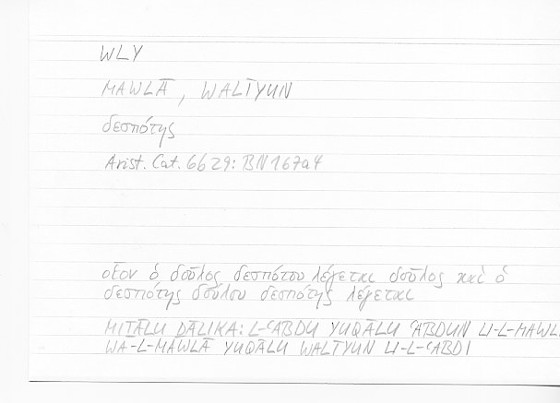 WLY
MAWLĀ, WALĪYUN
δεσπότης
Arist. Cat. 6b29: BN 167a4
οἷον ὁ δοῦλος δεσπότου λέγεται δοῦλος καὶ ὁ
δεσπότης δούλου δεσπότης λέγεται
MIṮĀLU ḎĀLIKA: L-ʿABDU YUQĀLU ʿABDUN LI-L-MAWL
WA-L-MAWLĀ YUQĀLU WALĪYUN LI-L-ʿABDI